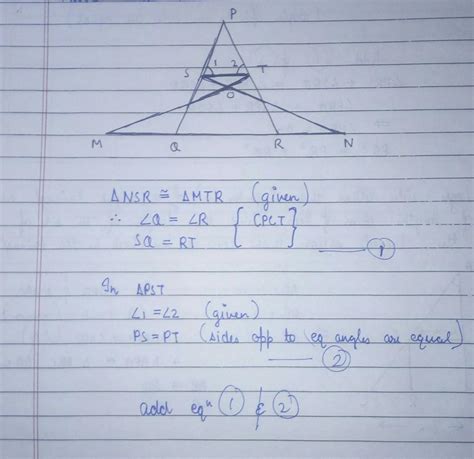 P
S 1 2 T
O
M Q R N
ΔNSR ≅ ΔMTR (given)
∴ ∠Q = ∠R { CPCT }
SQ = RT —— ①
In ΔPST
∠1 = ∠2 (given)
PS = PT (sides opp to eq angles are equal)
—— ②
add eqⁿ ① & ②